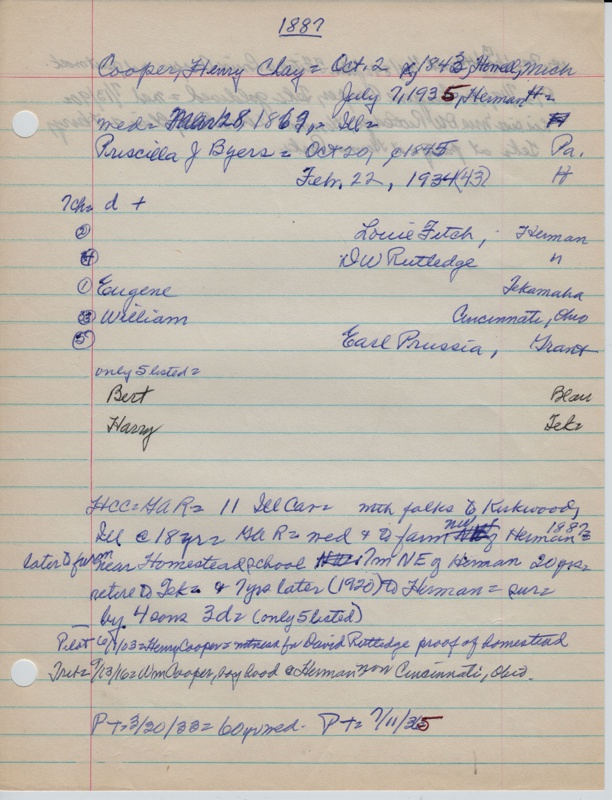 1887
Cooper, Henry Clay = Oct. 2 1843, Howell, Mich
July 7, 1935, Herman H=
wed = Mar 28, 1867, = Ill =
Priscilla J Byers = Oct 20, 1845 Pa.
Feb. 22, 1934 (43) H
7ch = d +
② Louie Fetch, Herman
④ DW Rutledge "
① Eugene Tekamaha
③ William Cincinnati, Ohio
⑤ Earl Prussia, Grant
only 5 listed =
Bert Blair
Harry Tek =
HCC = GAR = 11 Ill Cav = with folks to Kirkwood,
Ill @ 18 yr = GAR = wed & to farm NW of Herman = 1887
later to farm near Homestead school 7m NE of Herman 20 yrs =
retire to Tek = & 7 yrs later (1920) to Herman = sur =
by 4 sons 3d = (only 5 listed)
Pilot 6/1/03 = Henry Cooper = witness for David Rutledge proof of homestead
7/13/16 = Wm Cooper, boyhood @ Herman now Cincinnati, Ohio.
P + = 3/20/33 = 60 yr wed. P + = 7/11/35